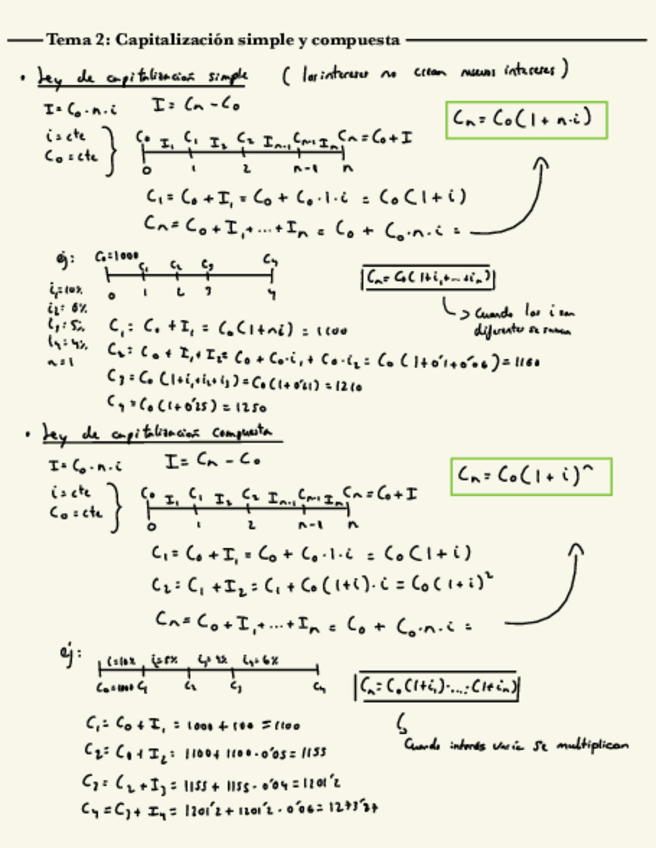 Tema 2: Capitalización simple y compuesta
• Ley de capitalización simple (los intereses no crean nuevos intereses)
I = C₀·n·i I = Cn - C₀
Cn = C₀(1 + n·i)
i = cte
C₀ = cte
C₀ I₁ C₁ I₂ C₂ In-1 Cn-1 In Cn = C₀ + I
0 1 2 n-1 n
C₁ = C₀ + I₁ = C₀ + C₀·1·i = C₀(1+i)
Cn = C₀ + I₁ + ... + In = C₀ + C₀·n·i =
ej: C₀=1000 C₁ C₂ C₃ C₄
0 1 2 3 4
Cn = C₀(1+i₁+...+in)
Cuando los i son
diferentes se suman
i₁=10%
i₂= 6%
i₃= 5%
i₄= 4%
n=1
C₁ = C₀ + I₁ = C₀(1+ni) = 1100
C₂ = C₀ + I₁ + I₂ = C₀ + C₀·i₁ + C₀·i₂ = C₀(1+0'1+0'06) = 1160
C₃ = C₀(1+i₁+i₂+i₃) = C₀(1+0'21) = 1210
C₄ = C₀(1+0'25) = 1250
• Ley de capitalización compuesta
I = C₀·n·i I = Cn - C₀
Cn = C₀(1+i)^n
i = cte
C₀ = cte
C₀ I₁ C₁ I₂ C₂ In-1 Cn-1 In Cn = C₀ + I
0 1 2 n-1 n
C₁ = C₀ + I₁ = C₀ + C₀·1·i = C₀(1+i)
C₂ = C₁ + I₂ = C₁ + C₀(1+i)·i = C₀(1+i)²
Cn = C₀ + I₁ + ... + In = C₀ + C₀·n·i =
ej:
i=10% i₂=5% i₃=4% i₄=6%
C₀=1000 C₁ C₂ C₃ C₄
Cn = C₀(1+i₁)·...·(1+in)
Cuando interés varía se multiplican
C₁ = C₀ + I₁ = 1000 + 100 = 1100
C₂ = C₁ + I₂ = 1100 + 1100·0'05 = 1155
C₃ = C₂ + I₃ = 1155 + 1155·0'04 = 1201'2
C₄ = C₃ + I₄ = 1201'2 + 1201'2·0'06 = 1273'27